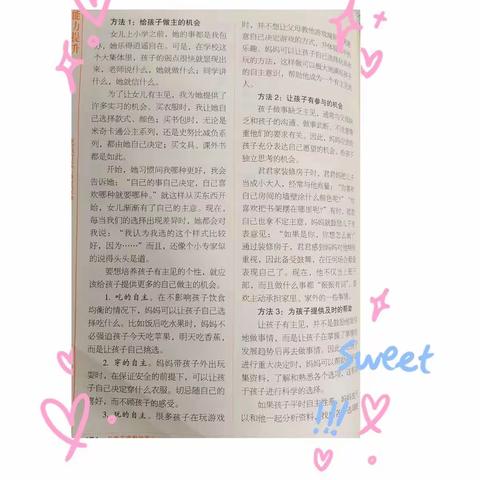 能力提升
方法1：给孩子做主的机会
女儿上小学之前，她的事都是我包
办，她乐得逍遥自在。可是，在学校这
个大集体里，孩子的弱点很快就显现出
来，老师说什么，她就做什么；同学讲
什么，她就信什么。
为了让女儿有主见，我为她提供了
许多实习的机会。买衣服时，我让她自
己选择款式、颜色；买书包时，无论是
米奇卡通公主系列，还是史努比减负系
列，都由她自己决定；买文具、课外书
都是如此。
开始，她习惯问我哪种更好，我会
告诉她：“自己的事自己决定，自己喜
欢哪种就要哪种。”就这样从买东西开
始，女儿渐渐有了自己的主意。现在，
每当我们的选择出现差异时，她都会对
我说：“我认为我选的这个样式比较
好，因为……”而且，还像个小专家似
的说得头头是道。
要想培养孩子有主见的个性，就应
该给孩子提供更多的自己做主的机会。
1. 吃的自主。在不影响孩子饮食
均衡的情况下，妈妈可以让孩子自己选
择吃什么。比如饭后吃水果时，妈妈不
必强迫孩子今天吃苹果，明天吃香蕉，
而是让孩子自己挑选。
2. 穿的自主。妈妈带孩子外出玩
耍时，在保证安全的前提下，可以让孩
子自己决定穿什么衣服。切忌随自己的
喜好，而不顾孩子的感受。
3. 玩的自主。很多孩子在玩游戏
时，并不想让父母教他游戏
意自己决定游戏的方式，
乐趣。妈妈可以让孩子自己
玩的方法，这样做可以极大地满
的自主意识，帮助他成为一个有主见的
人。
方法2：让孩子有参与的机会
孩子做事缺乏主见，通常与父母
乏和孩子的沟通、做事武断、不注意尊
重他们的要求有关。因此，妈妈应
孩子充分表达自己愿望的机会，给孩子
独立思考的机会。
君君家装修房子时，君君妈把儿子
当成小大人，经常与他商量：“你喜欢
自己房间的墙壁涂什么颜色呢？”“你
喜欢把书架摆在哪里呢？”有时，
自己也拿不定主意，妈妈就
意见：“如果是你，你想怎么做？”
通过装修房子，君君感到妈妈对他
重视，因此备受鼓舞，在任何场合都
表现自己了。现在，他不仅当上
部，而且做什么事都“振振有词”，喜
欢主动承担家里、家外的一些事情。
方法3：为孩子提供及时的帮助
让孩子有主见，并不是鼓励他
地做事情，而是让孩子在了解
发展趋势后再去做事情。因此，
进行重大决定时，妈妈可以帮
集资料，了解和熟悉各个选项，
于孩子进行科学的选择。
如果孩子平时自主性差，妈妈
以和他一起分析资料，找
Sweet
!!!